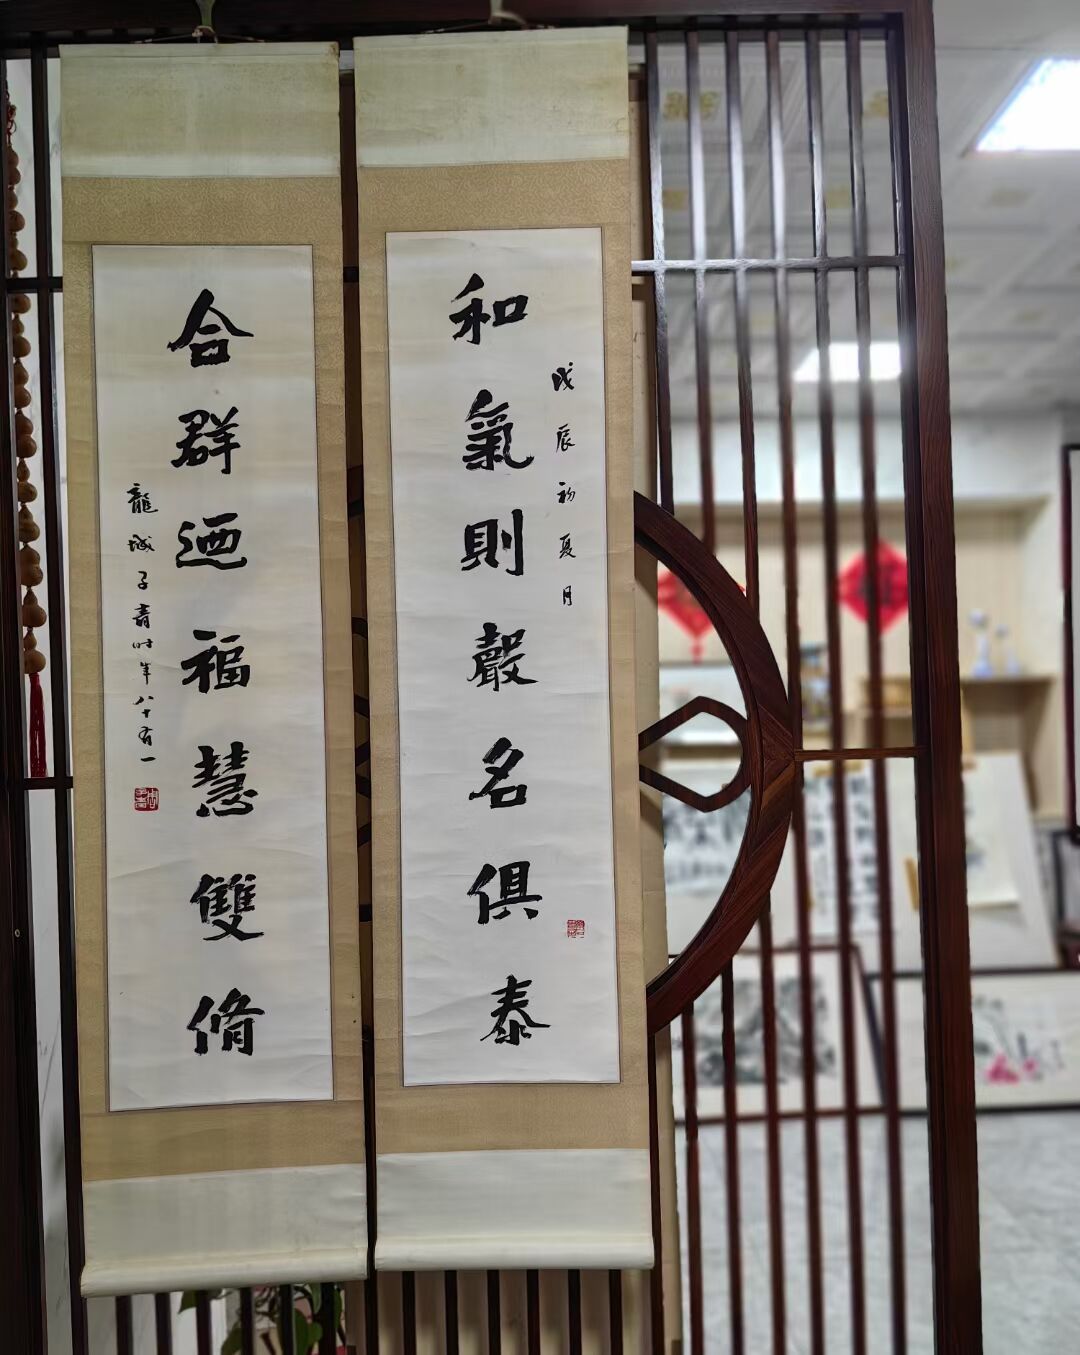 和氣則聲名俱泰
戊辰初夏月
合群迺福慧雙脩
龍城子青時年八十有一